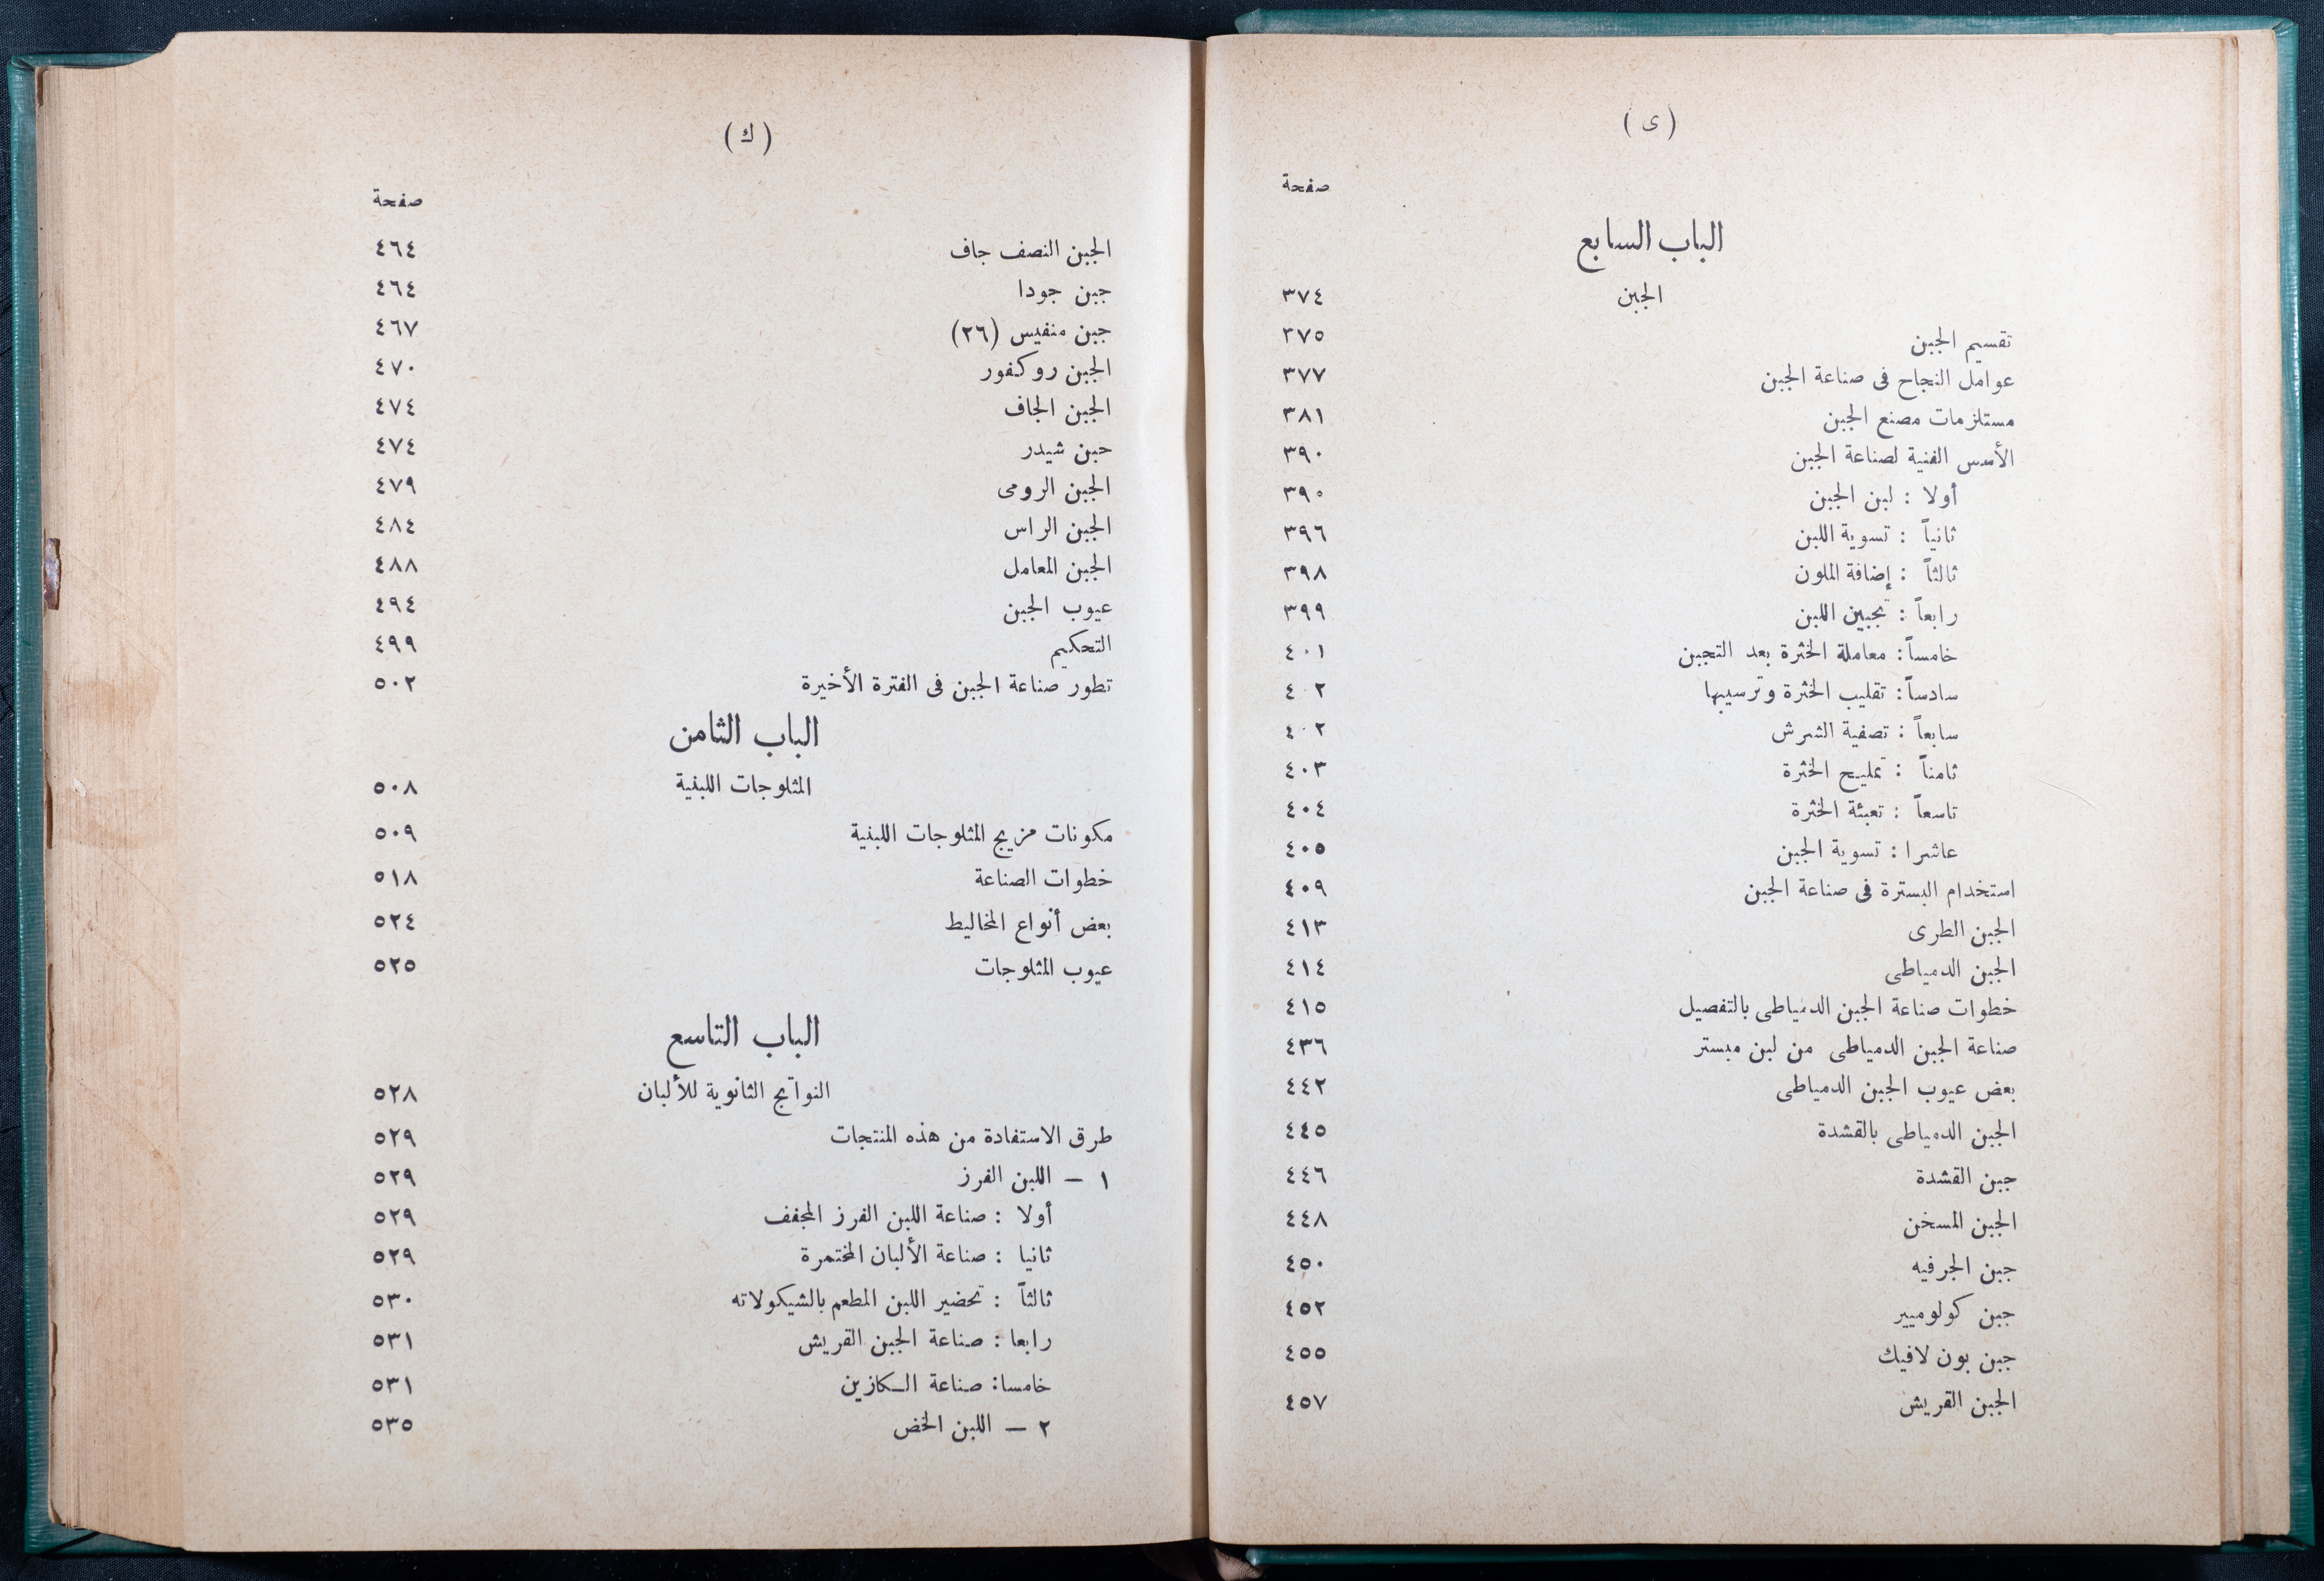 (ى)
صفحة
الباب السابع
الجبن ٣٧٤
تقسيم الجبن ٣٧٥
عوامل النجاح فى صناعة الجبن ٣٧٧
مستلزمات مصنع الجبن ٣٨١
الأسس الفنية لصناعة الجبن ٣٩٠
أولا : لبن الجبن ٣٩٠
ثانياً : تسوية اللبن ٣٩٦
ثالثاً : إضافة الملون ٣٩٨
رابعاً : تجبين اللبن ٣٩٩
خامساً : معاملة الخثرة بعد التجبن ٤٠١
سادساً : تقليب الخثرة وترسيبها ٤٠٢
سابعاً : تصفية الشرش ٤٠٢
ثامناً : تمليح الخثرة ٤٠٣
تاسعاً : تعبئة الخثرة ٤٠٤
عاشرا : تسوية الجبن ٤٠٥
استخدام البسترة فى صناعة الجبن ٤٠٩
الجبن الطرى ٤١٣
الجبن الدمياطى ٤١٤
خطوات صناعة الجبن الدمياطى بالتفصيل ٤١٥
صناعة الجبن الدمياطى من لبن مبستر ٤٣٦
بعض عيوب الجبن الدمياطى ٤٤٢
الجبن الدمياطى بالقشدة ٤٤٥
جبن القشدة ٤٤٦
الجبن المسخن ٤٤٨
جبن الجرفيه ٤٥٠
جبن كولوميير ٤٥٢
جبن بون لافيك ٤٥٥
الجبن القريش ٤٥٧
(ك)
صفحة
الجبن النصف جاف ٤٦٤
جبن جودا ٤٦٤
جبن منفيس (٢٦) ٤٦٧
الجبن روكفور ٤٧٠
الجبن الجاف ٤٧٤
حبن شيدر ٤٧٤
الجبن الرومى ٤٧٩
الجبن الراس ٤٨٤
الجبن المعامل ٤٨٨
عيوب الجبن ٤٩٤
التحكيم ٤٩٩
تطور صناعة الجبن فى الفترة الأخيرة ٥٠٢
الباب الثامن
المثلوجات اللبنية ٥٠٨
مكونات مزيج المثلوجات اللبنية ٥٠٩
خطوات الصناعة ٥١٨
بعض أنواع المخاليط ٥٢٤
عيوب المثلوجات ٥٢٥
الباب التاسع
النواتج الثانوية للألبان ٥٢٨
طرق الاستفادة من هذه المنتجات ٥٢٩
١ — اللبن الفرز ٥٢٩
أولا : صناعة اللبن الفرز المجفف ٥٢٩
ثانيا : صناعة الألبان المختمرة ٥٢٩
ثالثاً : تحضير اللبن المطعم بالشيكولاته ٥٣٠
رابعا : صناعة الجبن القريش ٥٣١
خامسا : صناعة الكازين ٥٣١
٢ — اللبن الخض ٥٣٥